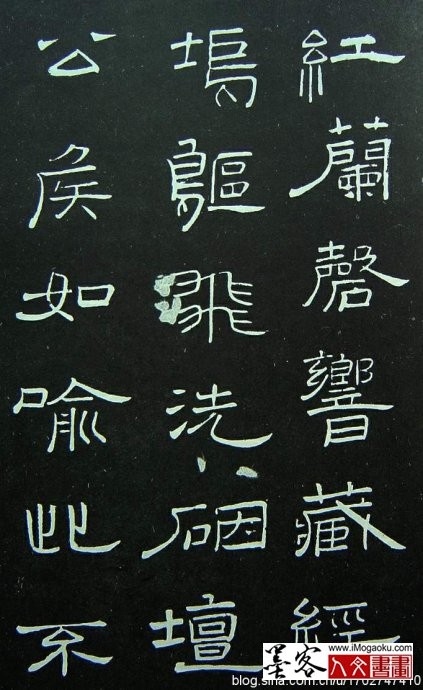 紅蘭磬響藏經
塢鷗飛洗壇
公侯如喻此不
www.iMogaoku.com
墨客
人文書畫
blog.sina.com.cn/u/1702747410